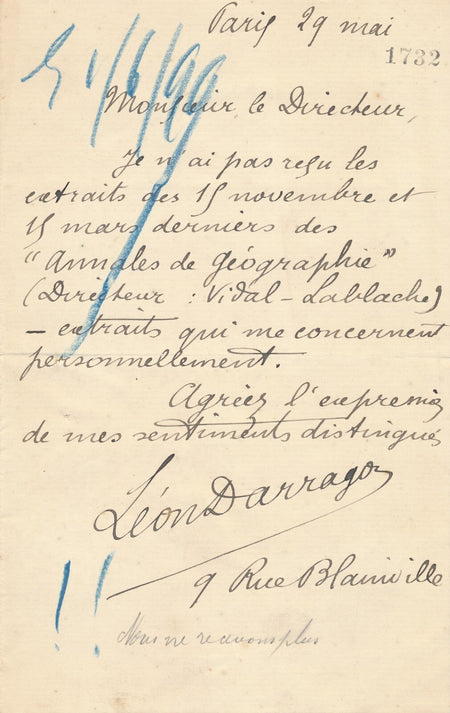 Paris 29 mai
1732
1/6/99
Monsieur le Directeur,
Je n'ai pas reçu les
extraits des 15 novembre et
15 mars derniers des
"Annales de Géographie"
(Directeur : Vidal-Lablache)
- extraits qui me concernent
personnellement.
Agréez l'expression
de mes sentiments distingués
Léon Darragon
9 Rue Blainville
!!
Nous ne avons plus